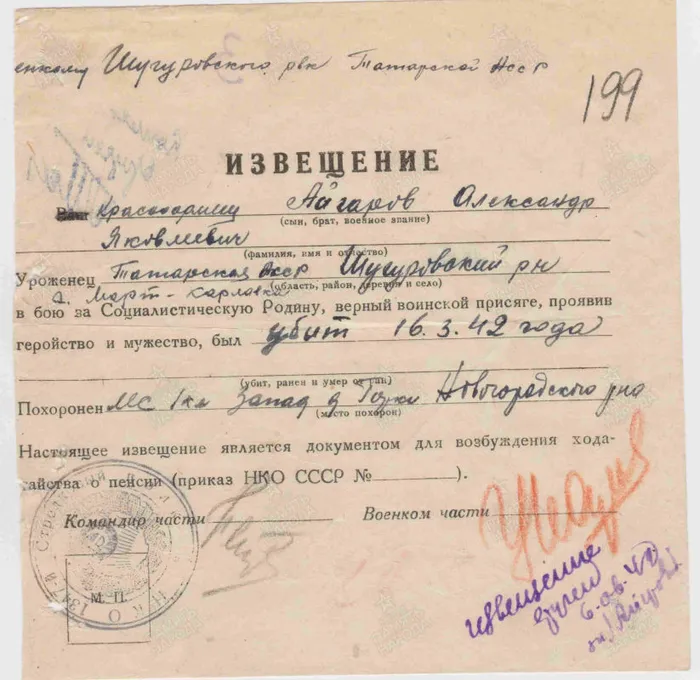 енкому Шугуровского рвк Татарской Асср
3
199
ИЗВЕЩЕНИЕ
Ваш красноармеец Айгаров Александр
(сын, брат, военное звание)
Яковлевич
(фамилия, имя и отчество)
Уроженец Татарская Асср Шугуровский рн
(область, район, деревня и село)
с. Март-Карловка
в бою за Социалистическую Родину, верный воинской присяге, проявив
геройство и мужество, был убит 16.3.42 года
(убит, ранен и умер от ран)
Похоронен 1км Запад д Горки Новгородского рна
(место похорон)
Настоящее извещение является документом для возбуждения хода-
тайства о пенсии (приказ НКО СССР № ).
Командир части Военком части
М. П.
Стрелковый НКО
извещение
вручен
6.08.42